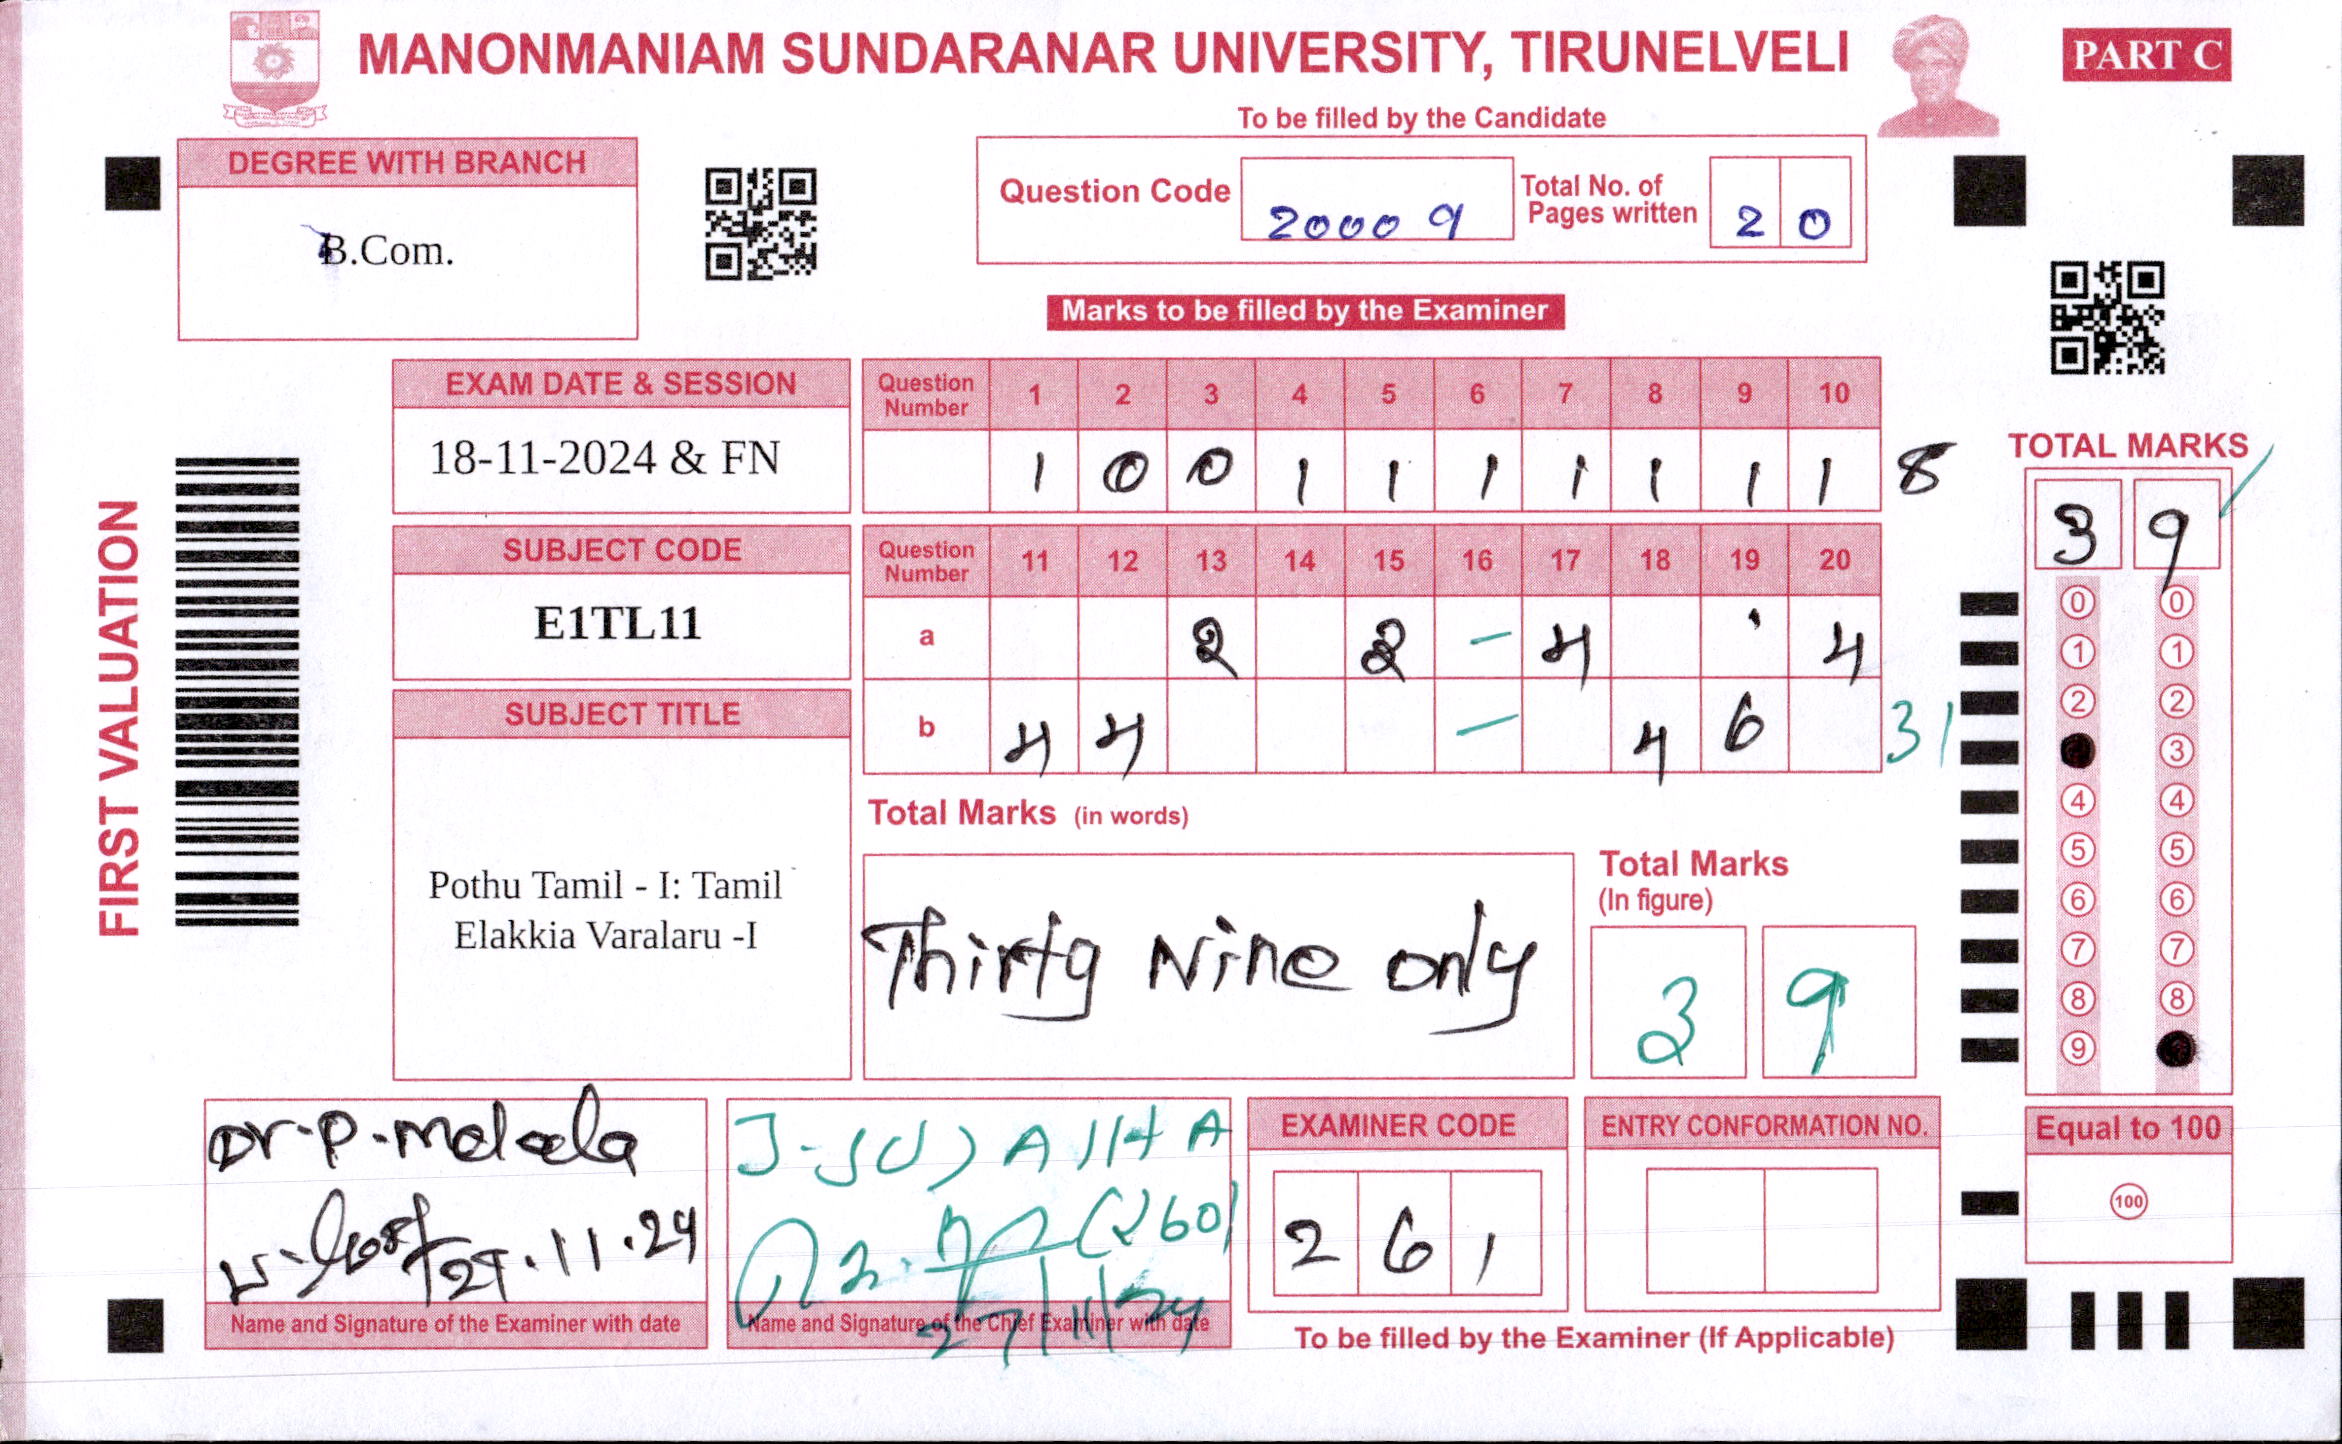 MANONMANIAM SUNDARANAR UNIVERSITY, TIRUNELVELI
PART C
To be filled by the Candidate
DEGREE WITH BRANCH
B.Com.
Question Code 20009
Total No. of Pages written 20
Marks to be filled by the Examiner
EXAM DATE & SESSION
18-11-2024 & FN
Question Number 1 2 3 4 5 6 7 8 9 10
1 0 0 1 1 1 1 1 1 1 8
SUBJECT CODE
E1TL11
Question Number 11 12 13 14 15 16 17 18 19 20
a 2 2 - 4 4
b 4 4 - 4 6 31
SUBJECT TITLE
Pothu Tamil - I: Tamil
Elakkia Varalaru -I
Total Marks (in words)
Thirty Nine only
Total Marks
(In figure)
3 9
FIRST VALUATION
TOTAL MARKS
3 9
0 0
1 1
2 2
3
4 4
5 5
6 6
7 7
8 8
9
Equal to 100
100
Dr. P.
Name and Signature of the Examiner with date
(260)
27/11/24
Name and Signature of the Chief Examiner with date
EXAMINER CODE
2 6 1
ENTRY CONFORMATION NO.
To be filled by the Examiner (If Applicable)